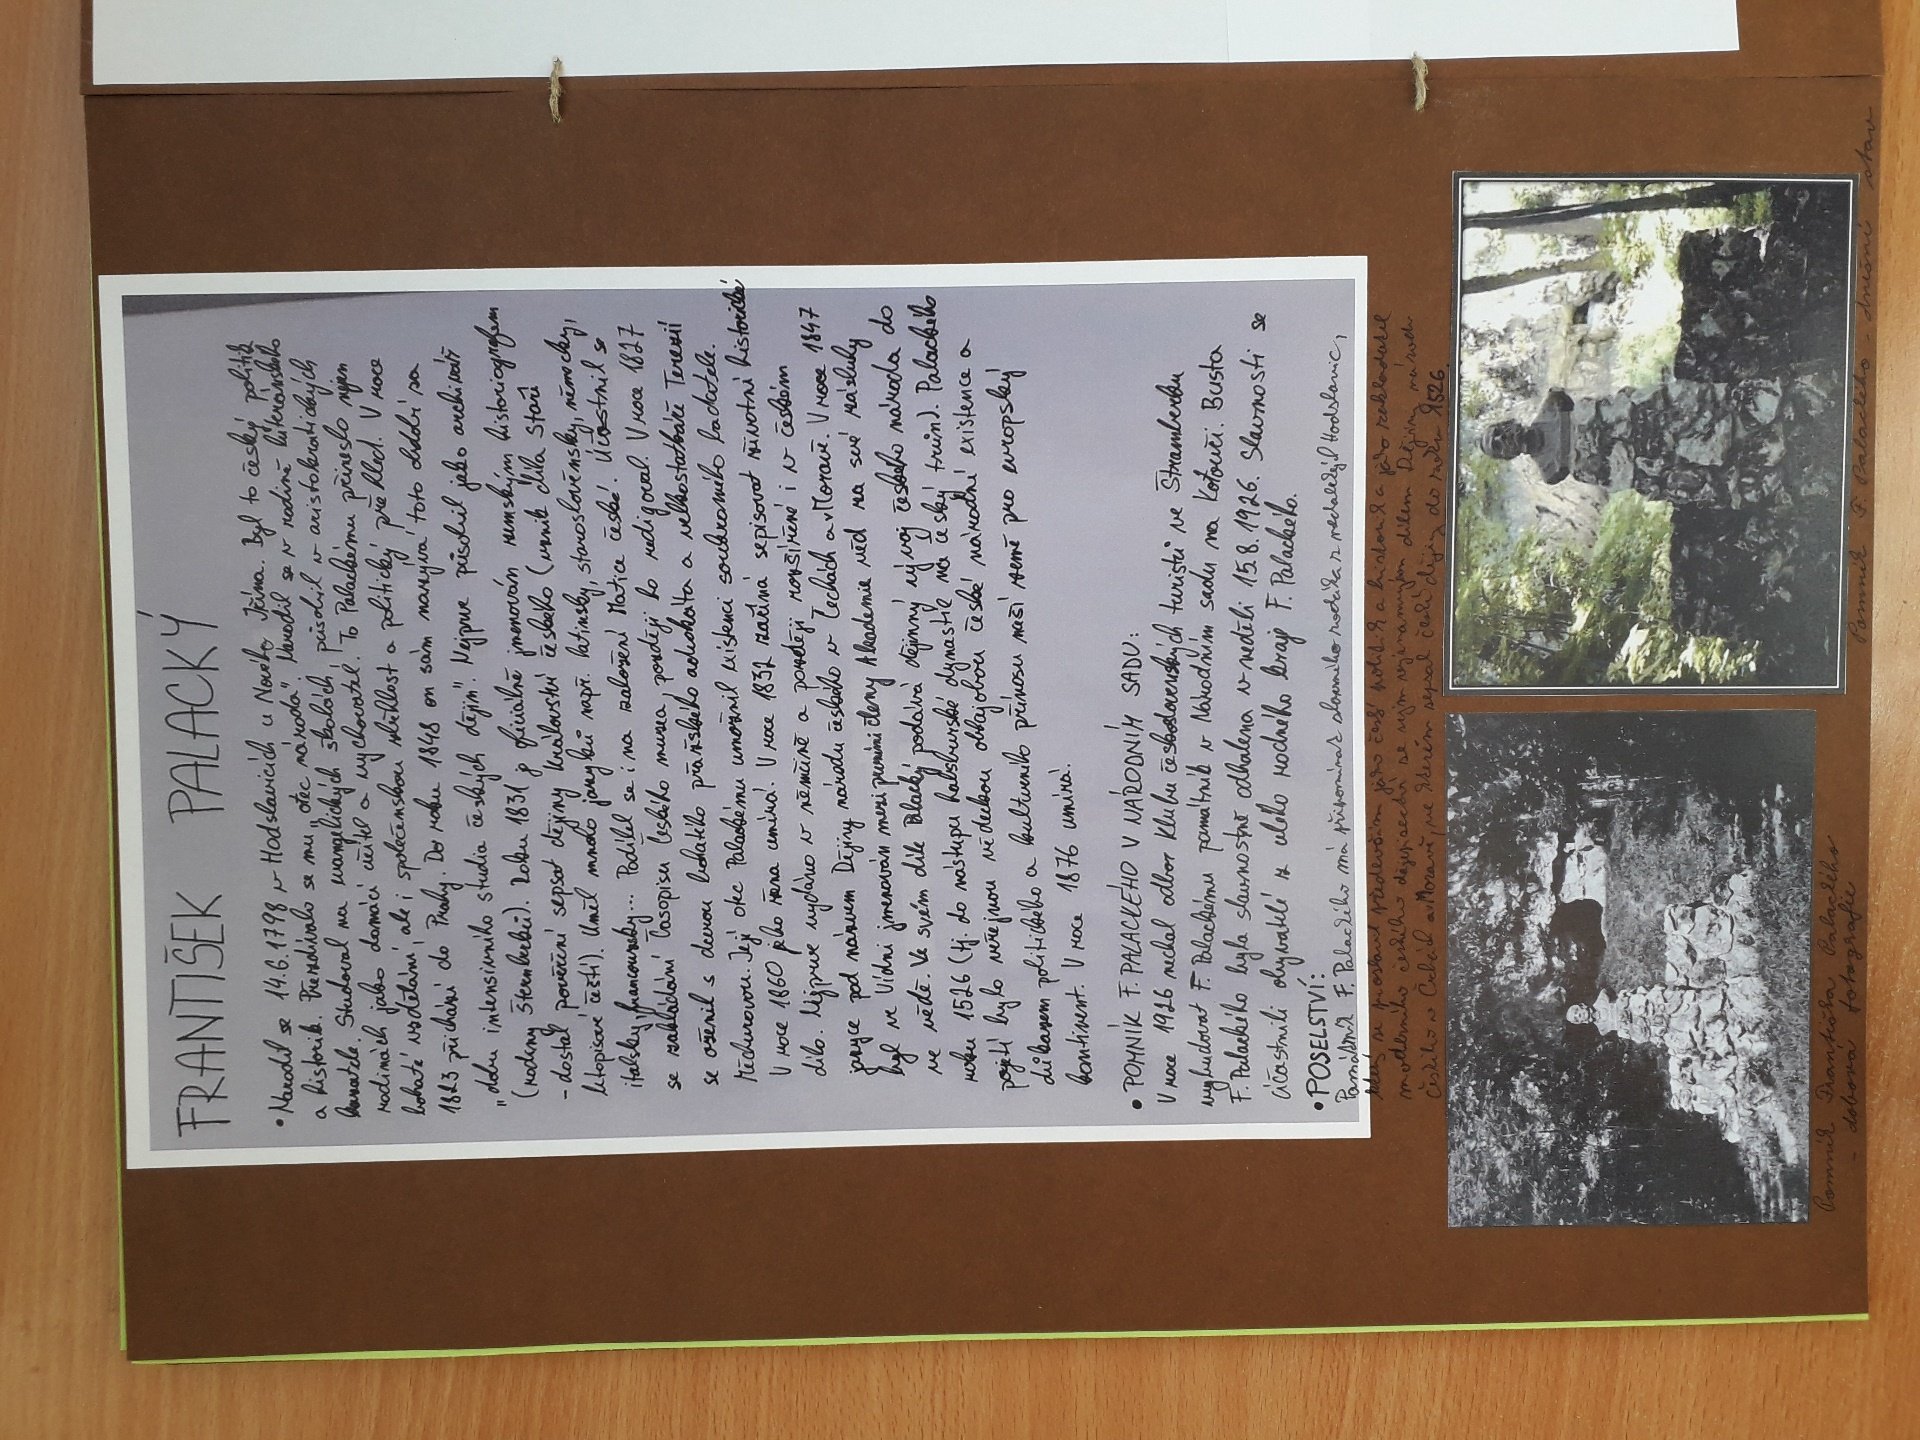 FRANTIŠEK PALACKÝ
• Narodil se 14.6.1798 v Hodslavicích u Nového Jičína. Byl to český politik
a historik. Přezdívalo se mu „otec národa". Narodil se v rodině luteránského
kazatele. Studoval na evangelických školách, působil v aristokratických
rodinách jako domácí učitel a vychovatel. To Palackému přineslo nejen
bohaté vzdělání ale i společenskou uhlazenost a politický přehled. V roce
1823 přichází do Prahy. Do roku 1848 on sám nazývá toto období za
„dobu intensivního studia českých dějin". Nejprve působil jako archivář
(rodiny Šternberků). Roku 1831 je oficiálně jmenován zemským historiografem
- dostal pověření sepsat dějiny království českého (vznik díla Staří
letopisové čeští). Uměl mnoho jazyků např. latinsky, staroslověnsky, německy,
italsky, francouzsky... Podílel se i na založení Matice české. Účastnil se
se zakládání Časopisu českého muzea, později ho redigoval. V roce 1827
se oženil s dcerou bohatého pražského advokáta a velkostatkáře Terezií
Měchurovou. Její otec Palackému umožnil existenci soukromého badatele.
V roce 1860 jeho žena umírá. V roce 1832 začíná sepisovat životní historické
dílo. Nejprve vydáno v němčině a později rozšířené i v českém
jazyce pod názvem Dějiny národu českého v Čechách a v Moravě. V roce 1847
byl ve Vídni jmenován mezi prvními členy Akademie věd za své zásluhy
ve vědě. Ve svém díle Palacký podává dějinný vývoj českého národa do
roku 1526 (tj. do nástupu habsburské dynastie na český trůn). Palackého
pojetí bylo veřejnou vědeckou obhajobou české národní existence a
důkazem politického a kulturního přínosu naší země pro evropský
kontinent. V roce 1876 umírá.
• POMNÍK F. PALACKÉHO V NÁRODNÍM SADU:
V roce 1926 nechal odbor Klubu československých turistů ve Štramberku
vybudovat F. Palackému památník v Národním sadu na Kotouči. Busta
F. Palackého byla slavnostně odhalena v neděli 15.8.1926. Slavnosti se
účastnili obyvatelé z celého rodného kraje F. Palackého.
• POSELSTVÍ:
Památník F. Palackého má připomínat slavného rodáka z nedalekých Hodslavic,
který se proslavil především jako český politik a historik a jako zakladatel
moderního českého dějepisectví se svým významným dílem Dějiny národu
českého v Čechách a v Moravě, ve kterém sepsal české dějiny do roku 1526.
Pomník Františka Palackého
- dobová fotografie
Pomník F. Palackého - dnešní stav